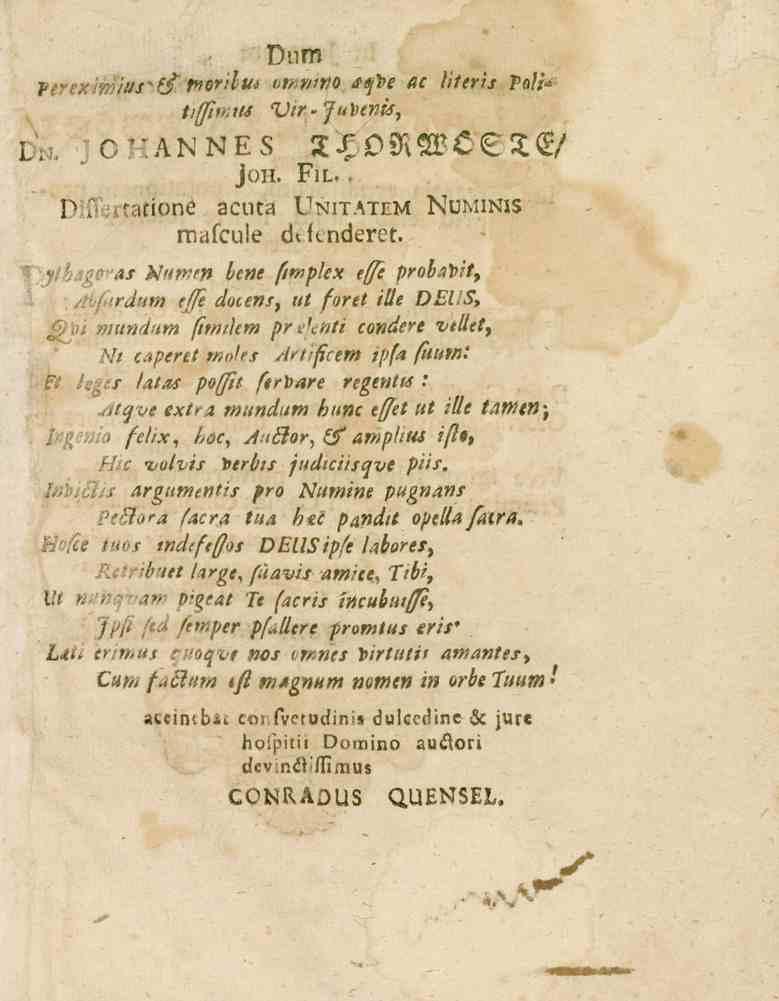 Dum
Pereximius & moribus omnino æqve ac literis Poli-
tiſſimus Vir-Juvenis,
DN. JOHANNES THORWÖSTE/
JOH. FIL.
Diſſertatione acuta UNITATEM NUMINIS
maſcule defenderet.
Pythagoras Numen bene ſimplex eſſe probavit,
Abſurdum eſſe docens, ut foret ille DEUS,
Qvi mundum ſimilem præſenti condere vellet,
Ni caperet moles Artificem ipſa ſuum:
Et leges latas poſſit ſervare regentis:
Atqve extra mundum hunc eſſet ut ille tamen;
Ingenio felix, hoc, Auctor, & amplius iſto,
Hic volvis verbis judiciisqve piis.
Invictis argumentis pro Numine pugnans
Pectora ſacra tua hæc pandit opella ſacra.
Hoſce tuos indefeſſos DEUS ipſe labores,
Retribuet large, ſuavis amice, Tibi,
Ut nunqvam pigeat Te ſacris incubuiſſe,
Ipſi ſed ſemper pſallere promtus eris
Læti erimus quoqve nos omnes virtutis amantes,
Cum factum eſt magnum nomen in orbe Tuum!
accinebat conſvetudinis dulcedine & jure
hoſpitii Domino auctori
devinctiſſimus
CONRADUS QUENSEL.